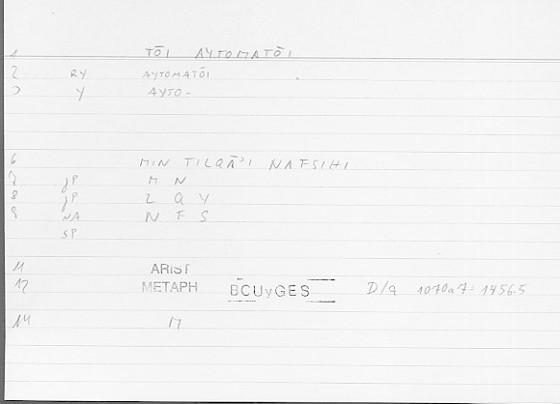 1 TŌI AYTOMATŌI
2 RY AYTOMATŌI
3 Y AYTO-
6 MIN TILQĀ'I NAFSIHI
7 JP M N
8 JP L Q Y
9 NA N F S
SP
11 ARIST
12 METAPH BCUyGES D/q 1070a7=1456.5
14 M